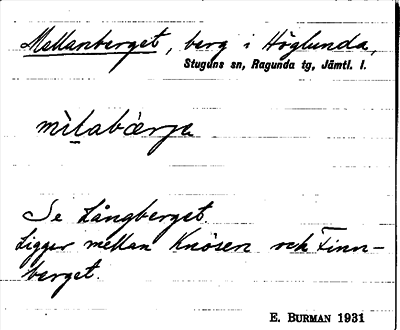 Mellanberget, berg i Höglunda,
Stuguns sn, Ragunda tg, Jämtl. l.
mìlabàrje
Se Långberget.
Ligger mellan Knösen och Finn-
berget.
E. BURMAN 1931